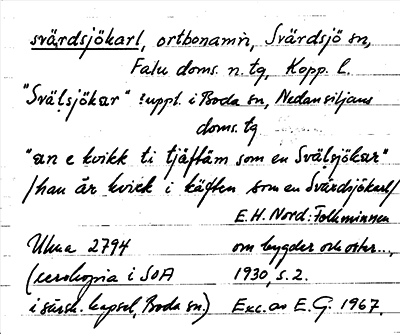 svärdsjökarl, ortbonamn, Svärdsjö sn,
Falu doms. n. tg, Kopp. l.
"Svälsjökar" : uppt. i Boda sn, Nedansiljans
doms. tg
"an e kvikk ti tjäftäm som en Svälsjökar"
/han är kvick i käften som en Svärdsjökarl/
E.H. Nord: Folkminnen
Uluа 2794 om bygder och orter...,
(xerokopia i SOA 1930, s. 2.
i särsk. kapsel, Boda sn.) Exc. av E.G. 1967.